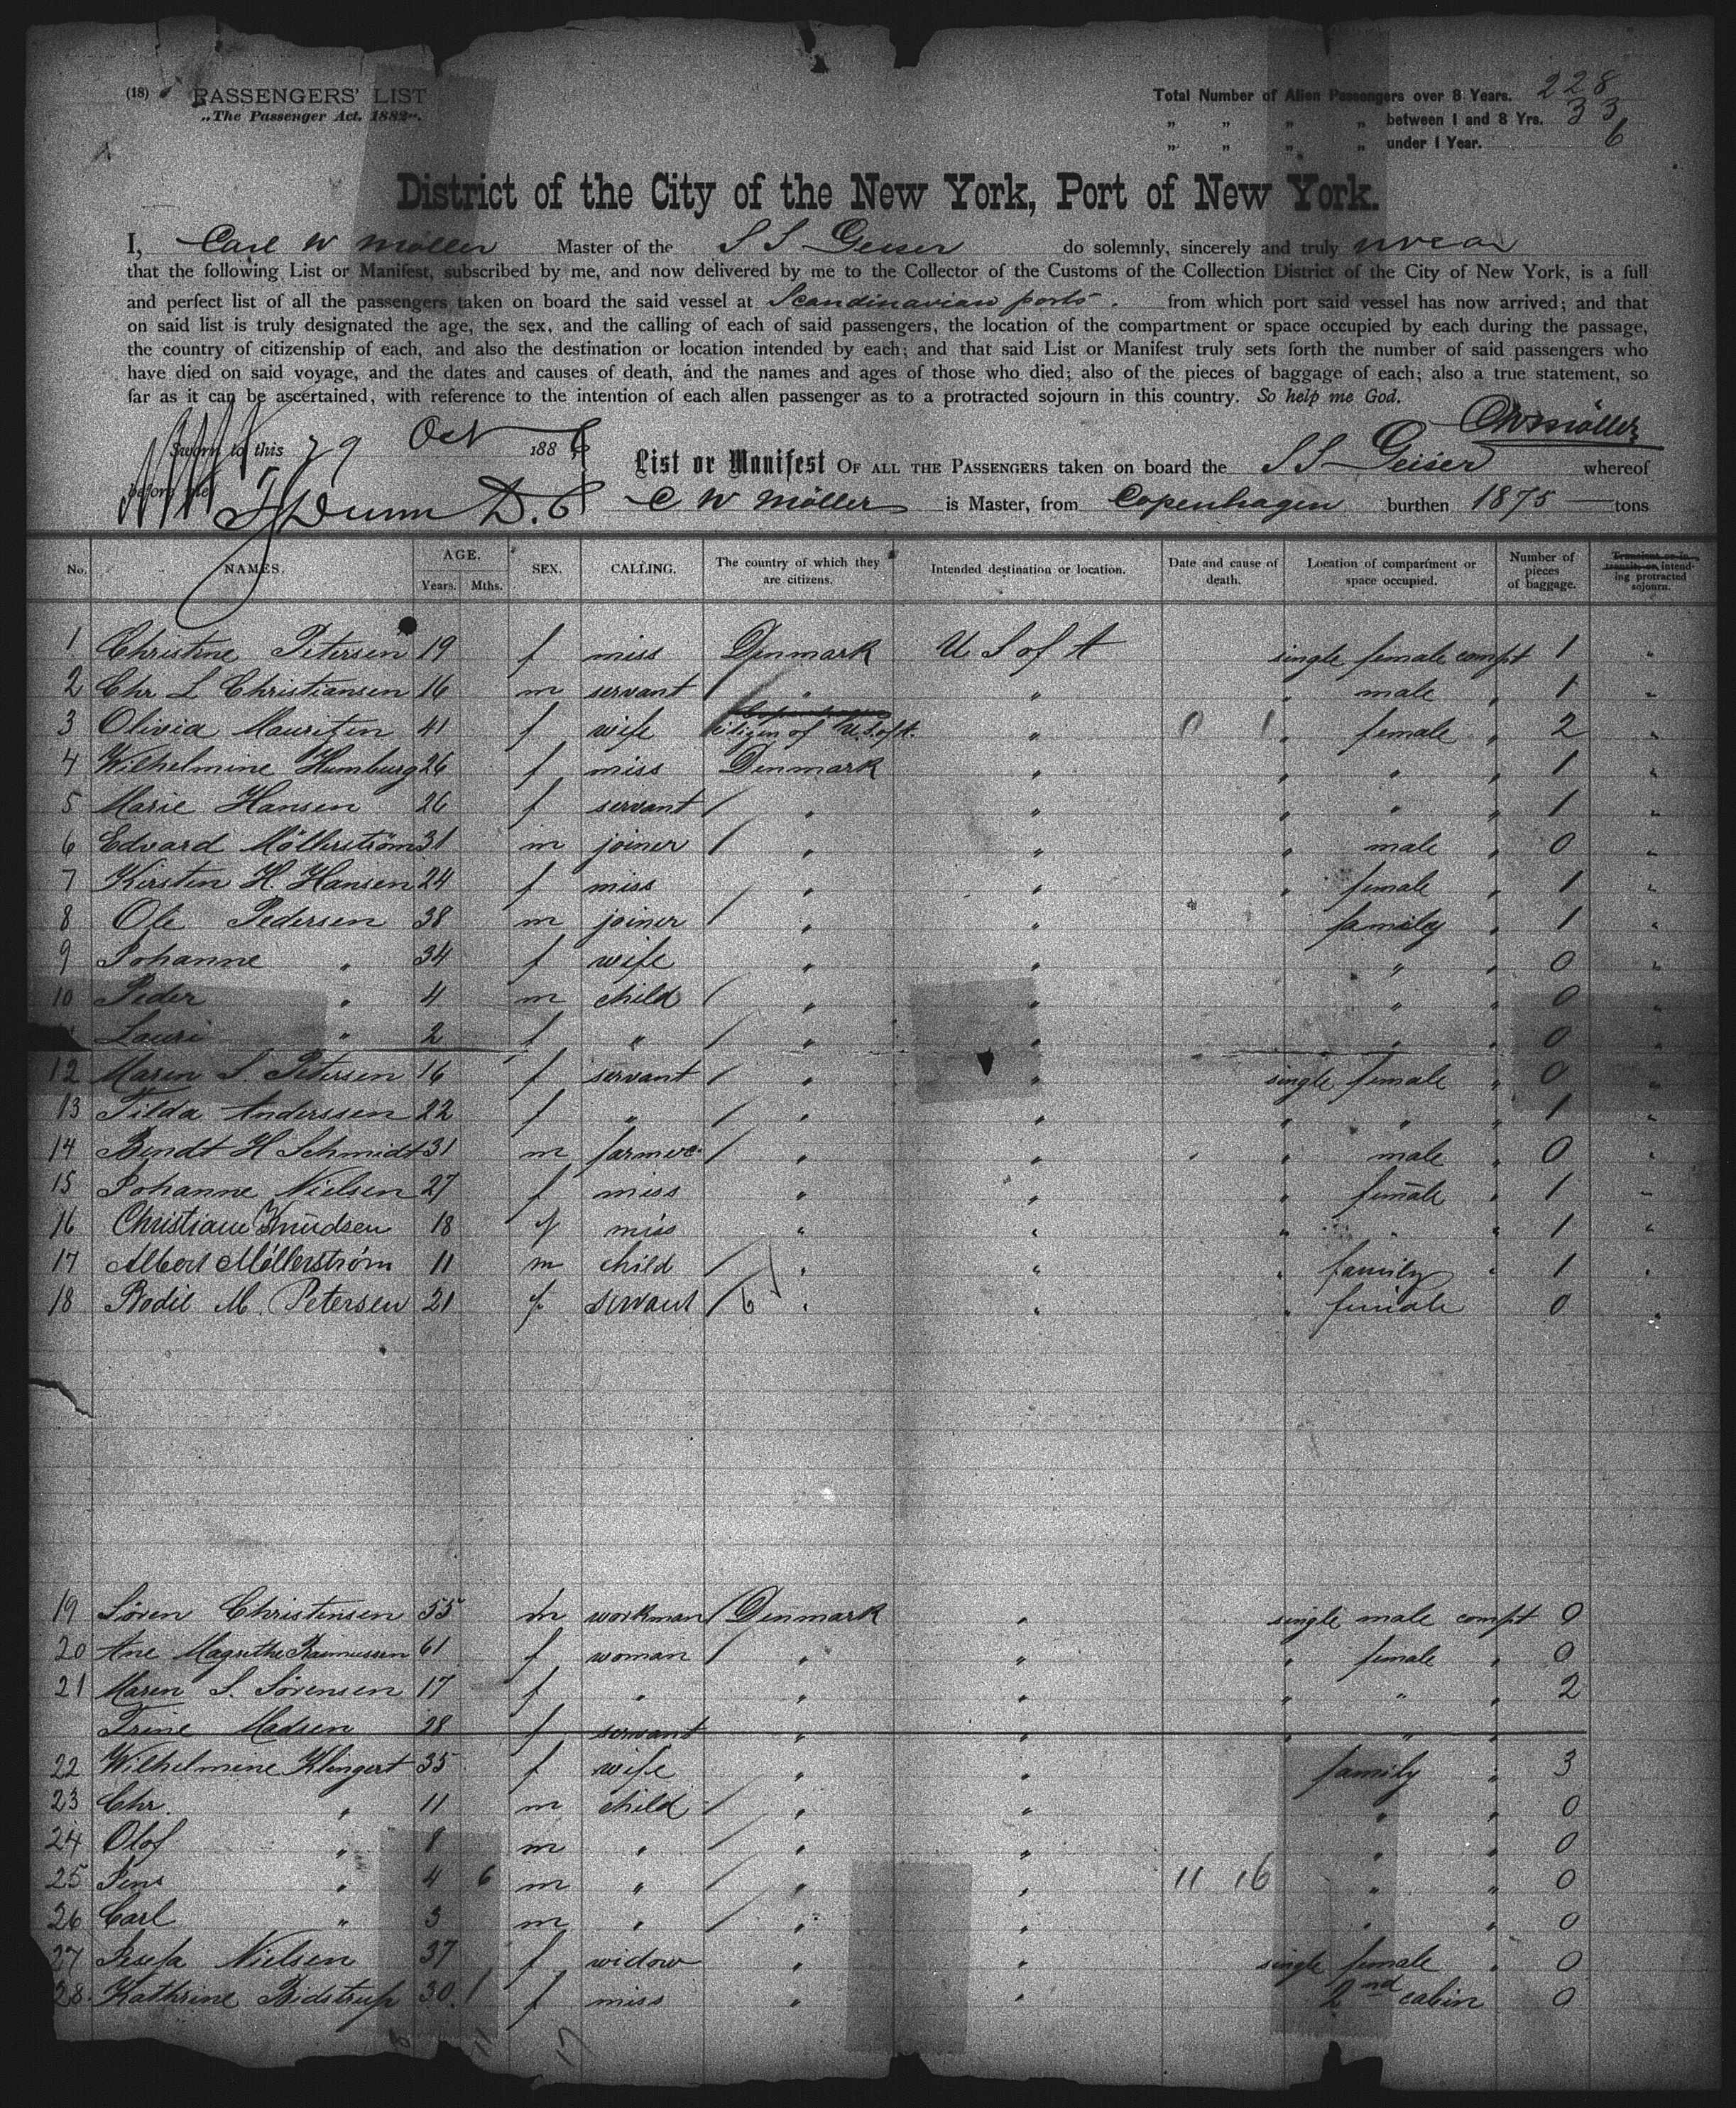 (18) PASSENGERS' LIST
„The Passenger Act. 1882“.
Total Number of Alien Passengers over 8 Years. 228
„ „ „ „ between 1 and 8 Yrs. 33
„ „ „ „ under 1 Year. 6
District of the City of the New York, Port of New York.
I, Carl W Möller Master of the S S Geiser do solemnly, sincerely and truly swear
that the following List or Manifest, subscribed by me, and now delivered by me to the Collector of the Customs of the Collection District of the City of New York, is a full
and perfect list of all the passengers taken on board the said vessel at Scandinavian ports. from which port said vessel has now arrived; and that
on said list is truly designated the age, the sex, and the calling of each of said passengers, the location of the compartment or space occupied by each during the passage,
the country of citizenship of each, and also the destination or location intended by each; and that said List or Manifest truly sets forth the number of said passengers who
have died on said voyage, and the dates and causes of death, and the names and ages of those who died; also of the pieces of baggage of each; also a true statement, so
far as it can be ascertained, with reference to the intention of each allen passenger as to a protracted sojourn in this country. So help me God.
CWMöller
Sworn to this 29 Oct 188
List or Manifest OF ALL THE PASSENGERS taken on board the S S Geiser whereof
before me
C W Möller is Master, from Copenhagen burthen 1875 — tons
No. NAMES. AGE. Years. Mths. SEX. CALLING. The country of which they are citizens. Intended destination or location. Date and cause of death. Location of compartment or space occupied. Number of pieces of baggage. Transient or in transit, or intending protracted sojourn.
1 Christine Petersen 19 f miss Denmark U S of A single female compt 1 "
2 Chr L Christiansen 16 m servant " " " male " 1 "
3 Olivia 41 f wife citizen of U.S. of A. " " female " 2 "
4 Wilhelmine Humburg 26 f miss Denmark " " " " 1 "
5 Marie Hansen 26 f servant " " " " " 1 "
6 Edvard Möllerström 31 m joiner " " " male " 0 "
7 Kirsten H. Hansen 24 f miss " " " female " 1 "
8 Ole Pedersen 38 m joiner " " family " 1 "
9 Johanne " 34 f wife " " " " 0 "
10 Peder " 4 m child " " " " 0 "
Lauri " 2 f " " " " " 0 "
12 Maren S. Petersen 16 f servant " " single female " 0 "
13 Tilda Anderssen 22 f " " " " " " 1 "
14 Bendt H Schmidt 31 m farmer " " " male " 0 "
15 Johanne Nielsen 27 f miss " " " female " 1 "
16 Christiane Knudsen 18 f miss " " " " " 1 "
17 Albert Möllerström 11 m child " " " family " 1 "
18 Bodil M. Petersen 21 f. servant " " " female 0 "
19 Sören Christensen 55 m workman Denmark " single male compt 0
20 Ane Magrethe Rasmussen 61 f woman " " " female " 0
21 Maren S. Sörensen 17 f " " " " " " 2
Trine Madsen 28 f servant " " " " "
22 Wilhelmine Klingert 35 f wife " " family " 3
23 Chr. " 11 m child " " " " 0
24 Olof " 8 m " " " " " 0
25 Jens " 4 6 m " " " 11 16 " " 0
26 Carl " 3 m " " " " " 0
27 Josefa Nielsen 37 f widow " " single female " 0
28. Kathrine Bidstrup 30 f miss " " 2nd cabin 0